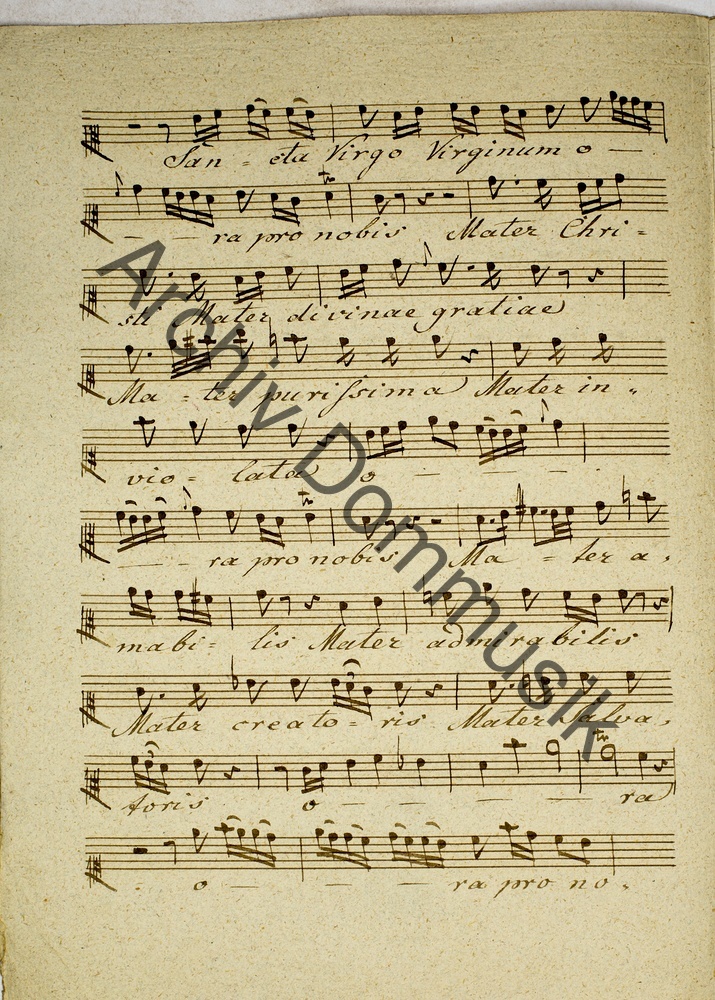 San - cta Virgo Virginum o —
— — ra pro nobis Mater Chri -
sti Mater divinae gratiae
Ma - ter purissima Mater in -
vio - lata o — — — —
— — ra pro nobis Ma - ter a -
mabi - lis Mater admirabilis
Mater creato - ris Mater Salva -
toris o — — — — — ra
- o — — — ra pro no -
Archiv Dommusik